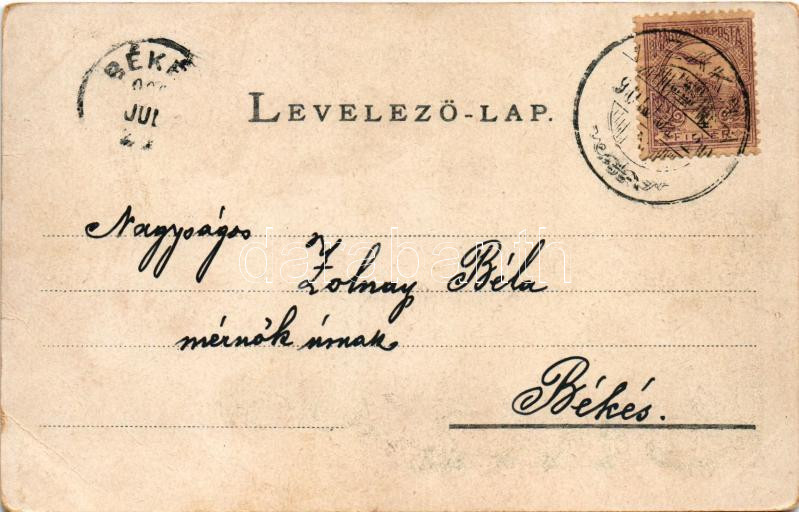 BÉKÉ
JUL
LEVELEZŐ-LAP.
MAGYAR KIR. POSTA
FILLÉR
Nagyságos
Zolnay Béla
mérnök úrnak
Békés.
darabanth